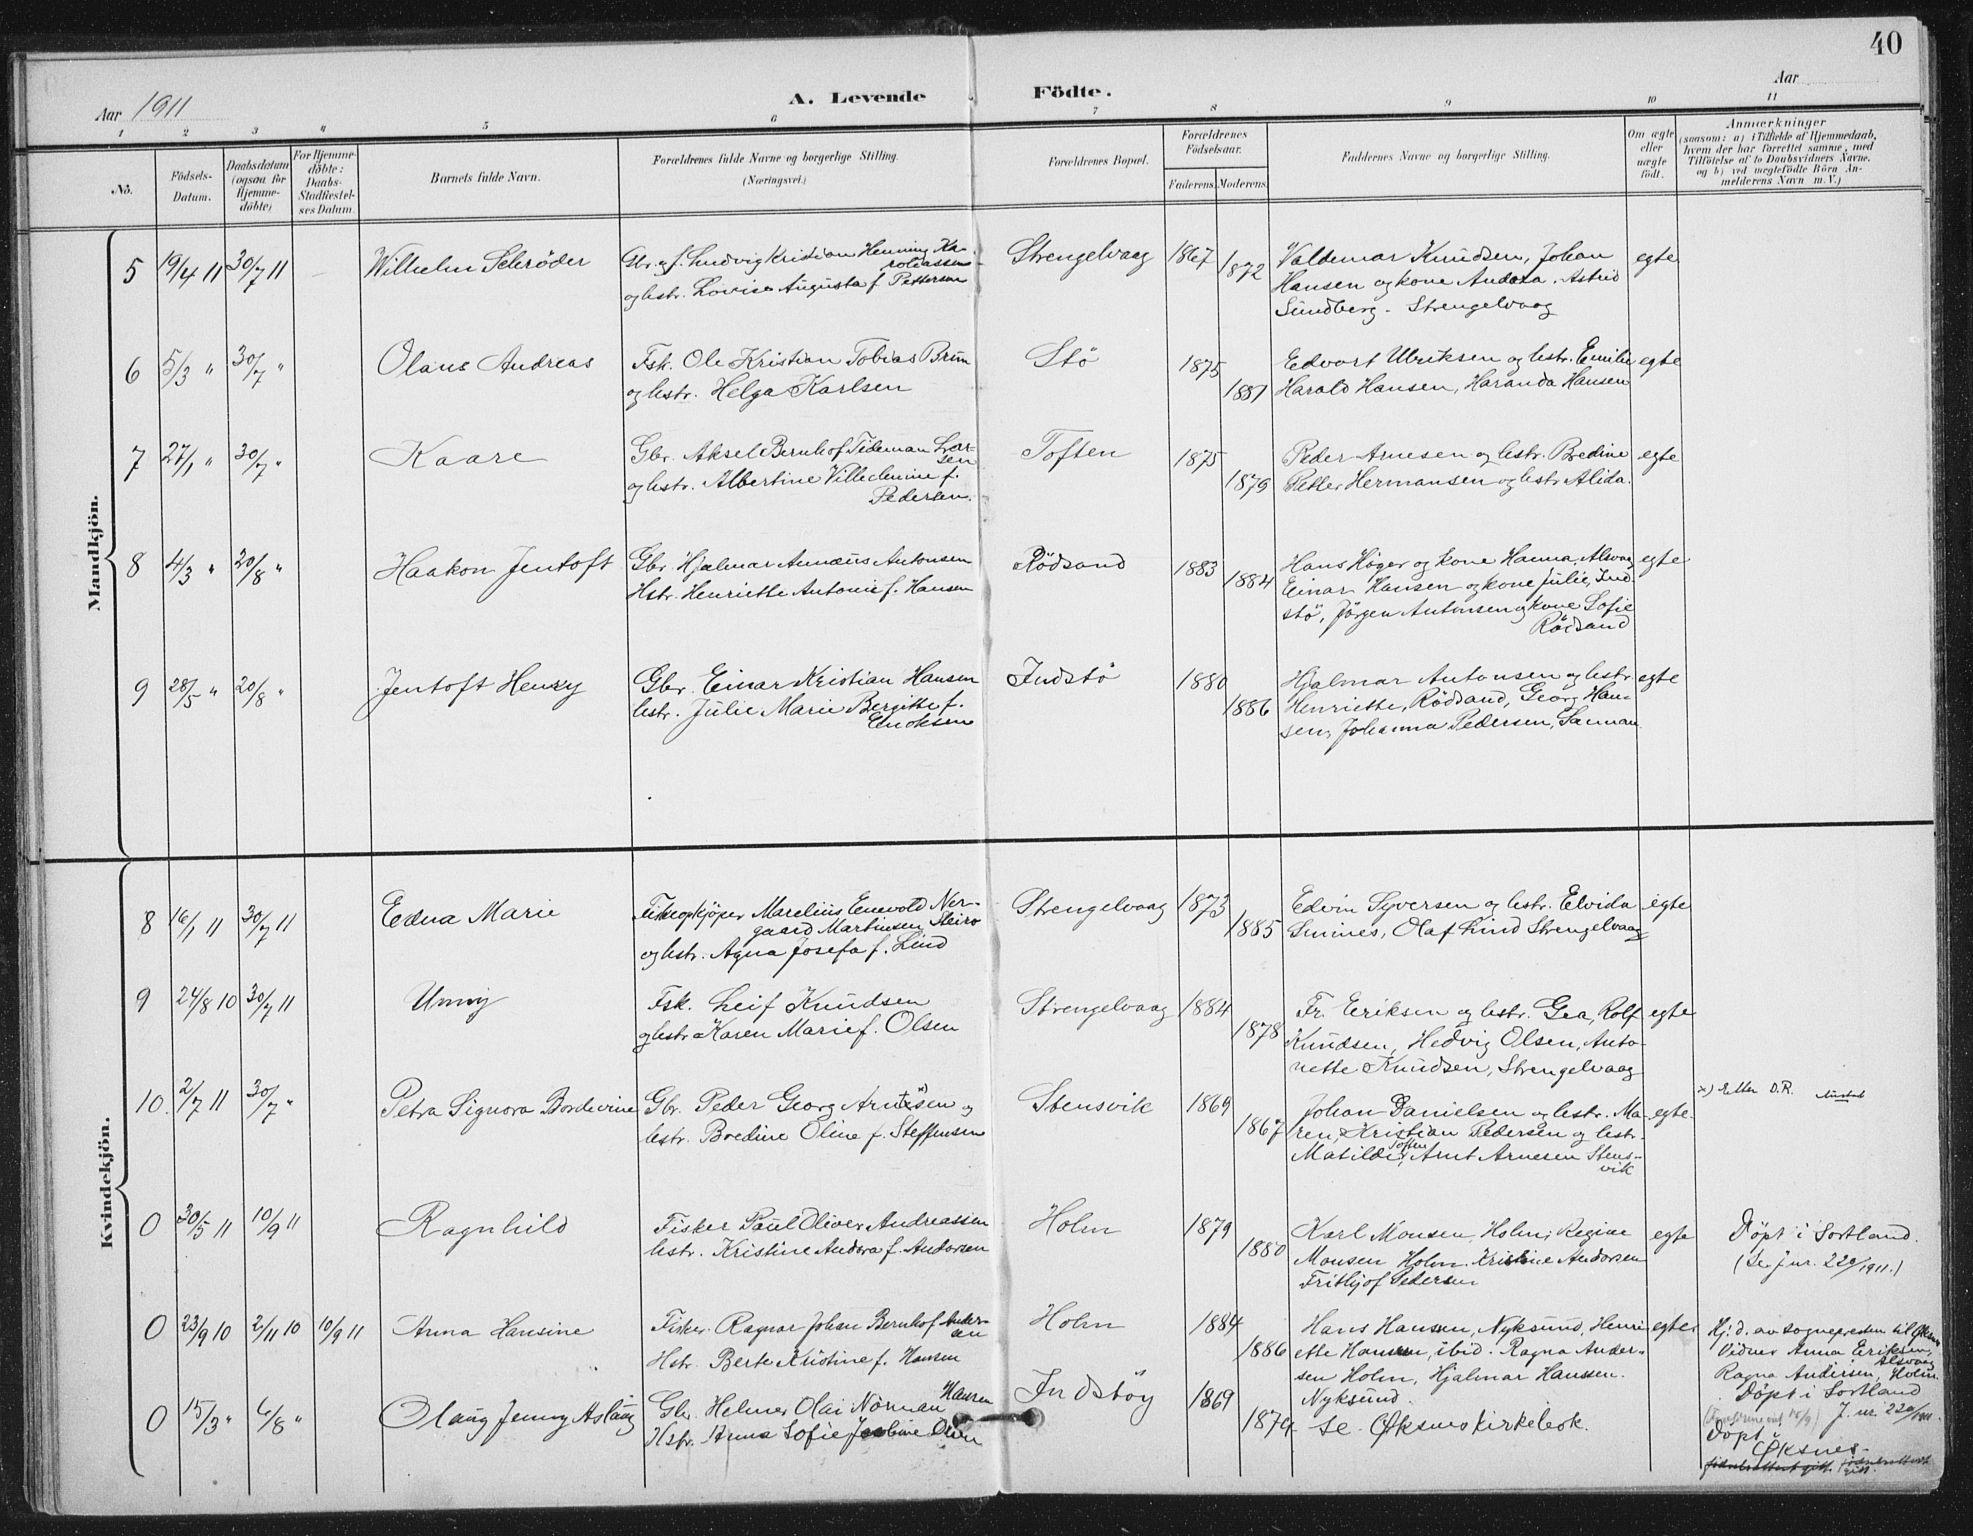 40
Aar 1911
A. Levende Födte.
Aar
1 2 3 4 5 6 7 8 9 10 11
No.
Födsels-Datum.
Daabsdatum (ogsaa for Hjemme-döbte)
For Hjemme-döbte: Daabs-Stadfæstel-ses Datum.
Barnets fulde Navn.
Forældrenes fulde Navne og borgerlige Stilling. (Næringsvei.)
Forældrenes Bopæl.
Forældrenes Födselsaar.
Faderens. Moderens.
Faddernes Navne og borgerlige Stilling.
Om ægte eller uægte födt.
Anmærkninger
(saasom: a) i Tilfælde af Hjemmedaab,
hvem der har forrettet samme, med
Tilföielse af to Daabsvidners Navne.
og b) ved uægtefödte Börn An-
melderens Navn m. V.)
Mandkjön.
5 19/4 11 30/7 11 Wilhelm Schrøder Gbr. og f. Ludvig Kristian Henning Ka-
roliassen
og hstr. Lovise Augusta f. Pettersen
Strengelvaag 1867 1872 Valdemar Knudsen, Johan egte
Hansen og kone Andora, Astrid
Sundberg - Strengelvaag
6 5/3 " 30/7 " Olaus Andreas Fsk. Ole Kristian Tobias Brun
og hstr. Helga Karlsen
Stö 1875 1881 Edvart Ulriksen og hstr. Emilie egte
Harald Hansen, Haranda Hansen
7 27/1 " 30/7 " Kaare Gbr. Aksel Bernhof Tideman Lar-
sen
og hstr. Albertine Villehmine f.
Pedersen.
Toften 1875 1879 Peder Arnesen og hstr. Bredine egte
Petter Hermansen og hstr Alida.
8 4/3 " 20/8 " Haakon Jentoft Gbr Hjalmar Annæus Antonsen
Hstr. Henriette Antonie f. Hansen
Rödsand 1883 1884 Hans Höger og kone Hanna, Alsvaag egte
Einar Hansen og kone Julie, Ind-
stö, Jörgen Antonsen og kone Sofie
Rödsand
9 28/5 " 20/8 " Jentoft Henry Gbr. Einar Kristian Hansen
hstr. Julie Marie Bergitte f.
Enoksen
Indstö 1880 1886 Hjalmar Antonsen og hstr egte
Henriette, Rödsand, Georg Han-
sen, Johanna Pedersen, Sannan
Kvindekjön.
8 16/1 11 30/7 11 Edna Marie Fiskeopkjöper Marelius Enevold Ner-
gaard Martinsen Steiro
og hstr. Agna Josefa f. Lind
Strengelvaag 1873 1885 Edvin Syversen og hstr. Elvida egte
Smines, Olaf Lind Strengelvaag
9 24/8 10 30/7 11 Unni Fsk. Leif Knudsen
og hstr Karen Marie f. Olsen
Strengelvaag 1884 1878 Fr. Eriksen og hstr. Gea, Rolf egte
Knudsen, Hedvig Olsen, Anto-
nette Knudsen, Strengelvaag
10. 2/7 11 30/7 " Petra Signora Bordevine Gbr. Peder Georg Arntsen x) og
hstr. Bredine Oline f. Steffensen
Stensvik 1869 1867 Johan Danielsen og hstr. Ma- egte.
ren, Kristian Pedersen og hstr.
Matilde, Toften, Arnt Arnesen Stens-
vik
x) Etter D.R.
0 30/5 11 10/9 11 Ragnhild Fisker Paul Oliver Andreassen
hstr. Kristine Andora f. Andorsen
Holm 1879 1880 Karl Monsen, Holm, Regine egte
Monsen Holm. Kristine Andorsen
Frithjof Pedersen
Döpt i Sortland.
(Se J nr. 220/1911.)
0 23/9 10 2/11 10 10/9 11 Anna Hansine Fisker. Ragnar Johan Bernhof Anders-
en
Hstr. Berte Kristine f. Hansen
Holm 1884 1886 Hans Hansen, Nyksund, Henri- egte
ette Hansen, ibid. Ragna Ander-
sen Holm, Hjalmar Hanssen.
Nyksund.
Hj. d. av sognepresten til Øksnes
Vidner Anna Eriksen,
Alsvaag
Ragna Andersen, Holm.
Döpt i Sortland
J. nr. 220/1911.
0 15/3 " 6/8 " Olaug Jenny Aslaug Gbr. Helmer Olai Norman Hansen
Hstr. Anna Sofie Josefine Olsen
Indstöy 1869 1879 Se Øksnes kirkebok.
Döpt i
Øksnes